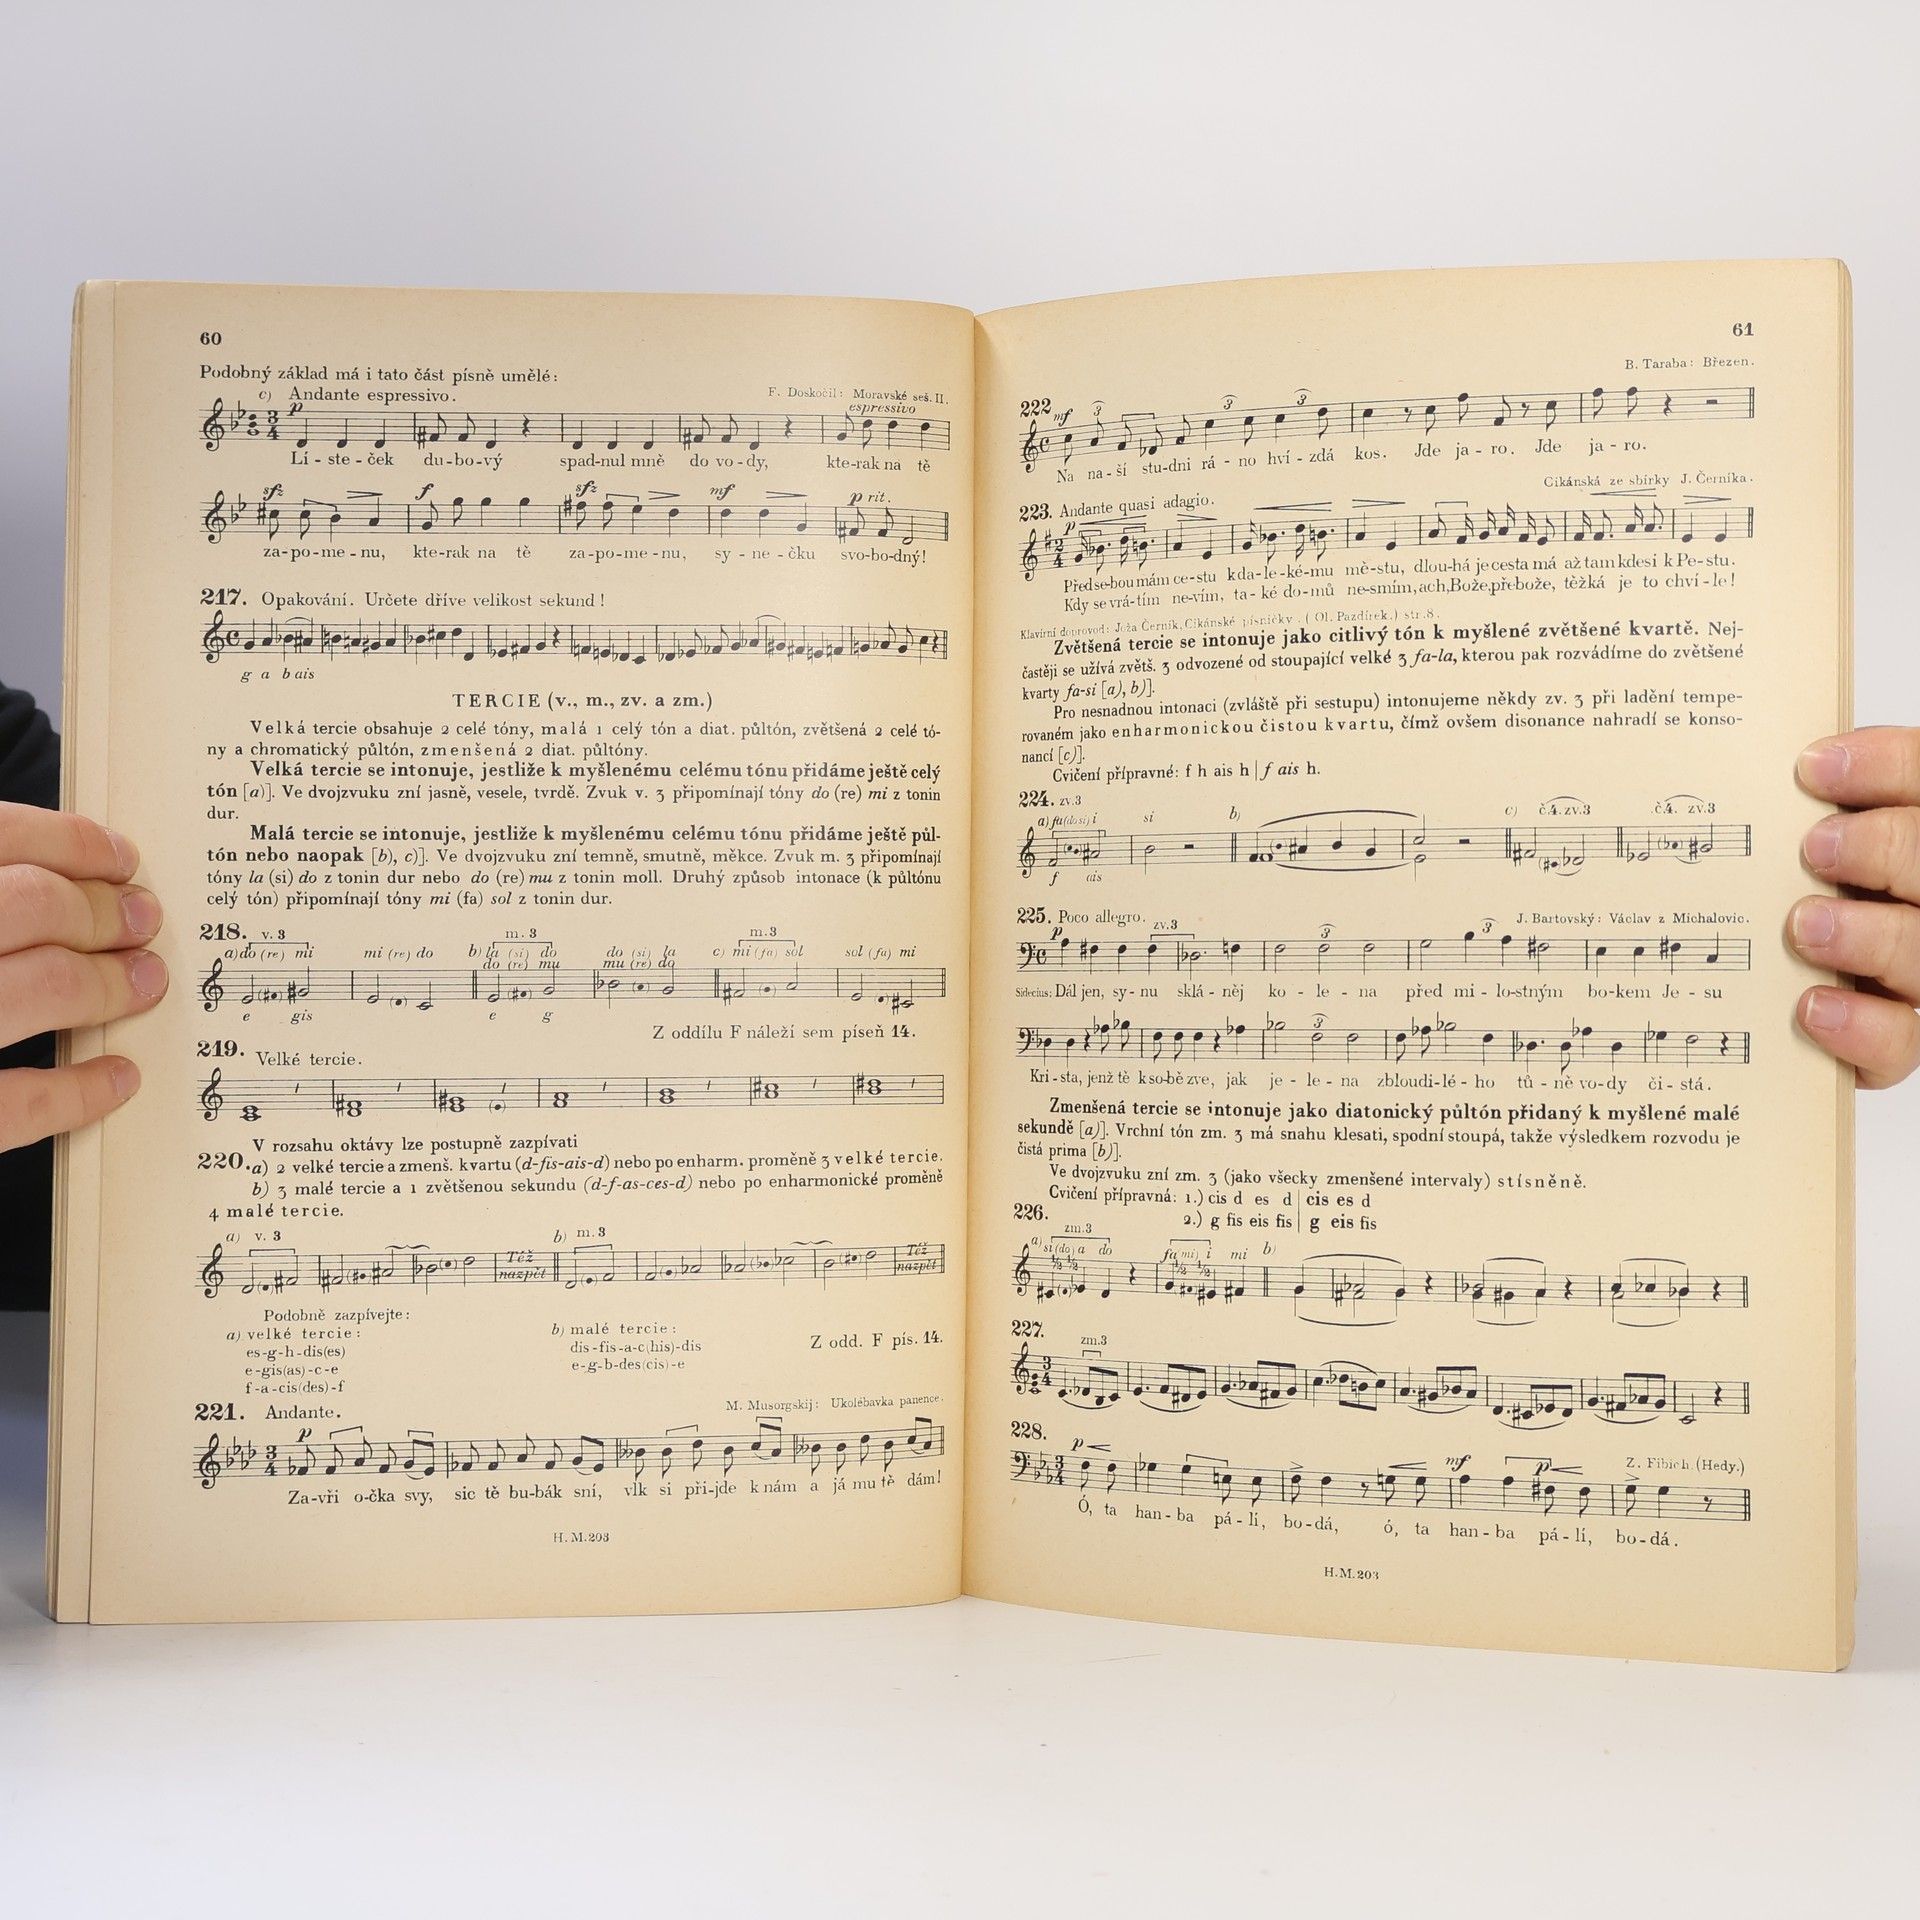 60
Podobný základ má i tato část písně umělé:
c) Andante espressivo.
F. Doskočil: Moravské seš. II.
p
espressivo
Lí - ste - ček du - bo - vý spad-nul mně do vo - dy, kte-rak na tě
sfz f sfz mf p rit.
za-po-me-nu, kte-rak na tě za-po-me-nu, sy - ne - čku svo-bo-dný!
217. Opakování. Určete dříve velikost sekund!
g a b ais
TERCIE (v., m., zv. a zm.)
Velká tercie obsahuje 2 celé tóny, malá 1 celý tón a diat. půltón, zvětšená 2 celé tó-
ny a chromatický půltón, zmenšená 2 diat. půltóny.
Velká tercie se intonuje, jestliže k myšlenému celému tónu přidáme ještě celý
tón [a)]. Ve dvojzvuku zní jasně, vesele, tvrdě. Zvuk v. 3 připomínají tóny do (re) mi z tonin
dur.
Malá tercie se intonuje, jestliže k myšlenému celému tónu přidáme ještě půl-
tón nebo naopak [b), c)]. Ve dvojzvuku zní temně, smutně, měkce. Zvuk m. 3 připomínají
tóny la (si) do z tonin dur nebo do (re) mu z tonin moll. Druhý způsob intonace (k půltónu
celý tón) připomínají tóny mi (fa) sol z tonin dur.
218. v. 3 m. 3 m. 3
a) do (re) mi mi (re) do b) la (si) do do (si) la c) mi (fa) sol sol (fa) mi
do (re) mu mu (re) do
e gis e g
Z oddílu F náleží sem píseň 14.
219. Velké tercie.
V rozsahu oktávy lze postupně zazpívati
220. a) 2 velké tercie a zmenš. kvartu (d-fis-ais-d) nebo po enharm. proměně 3 velké tercie.
b) 3 malé tercie a 1 zvětšenou sekundu (d-f-as-ces-d) nebo po enharmonické proměně
4 malé tercie.
a) v. 3 b) m. 3
Též
nazpět
Též
nazpět
Podobně zazpívejte:
a) velké tercie:
es-g-h-dis(es)
e-gis(as)-c-e
f-a-cis(des)-f
b) malé tercie:
dis-fis-a-c(his)-dis
e-g-b-des(cis)-e
Z odd. F pís. 14.
221. Andante.
M. Musorgskij: Ukolébavka panence.
p
Za-vři o-čka svy, sic tě bu-bák sní, vlk si při-jde k nám a já mu tě dám!
H. M. 203
61
B. Taraba: Březen.
222 mf 3 3 3
Na na-ší stu-dni rá - no hví - zdá kos. Jde ja - ro. Jde ja - ro.
Cikánská ze sbírky J. Černíka.
223. Andante quasi adagio.
p
Před se-bou mám ce-stu kda-le-ké-mu mě-stu, dlou-há je cesta má až tam kdesi k Pe-stu.
Kdy se vrá-tím ne-vím, ta-ké do-mů ne-smím, ach, Bože, přebože, těžká je to chví-le!
Klavírní doprovod: Joža Černík, Cikánské písničky. (Ol. Pazdírek.) str. 8.
Zvětšená tercie se intonuje jako citlivý tón k myšlené zvětšené kvartě. Nej-
častěji se užívá zvětš. 3 odvozené od stoupající velké 3 fa-la, kterou pak rozvádíme do zvětšené
kvarty fa-si [a), b)].
Pro nesnadnou intonaci (zvláště při sestupu) intonujeme někdy zv. 3 při ladění tempe-
rovaném jako enharmonickou čistou kvartu, čímž ovšem disonance nahradí se konso-
nancí [c)].
Cvičení přípravné: f h ais h | f ais h.
224. zv.3
a) fa (do si) i si b) c) č.4. zv.3 č.4. zv.3
f ais
225. Poco allegro.
J. Bartovský: Václav z Michalovic.
p zv.3 3 3
Sidecius: Dál jen, sy-nu sklá-něj ko - le - na před mi - lo-stným bo-kem Je - su
3
Kri-sta, jenž tě k so-bě zve, jak je - le - na zbloudi-lé - ho tů - ně vo-dy či - stá.
Zmenšená tercie se intonuje jako diatonický půltón přidaný k myšlené malé
sekundě [a)]. Vrchní tón zm. 3 má snahu klesati, spodní stoupá, takže výsledkem rozvodu je
čistá prima [b)].
Ve dvojzvuku zní zm. 3 (jako všecky zmenšené intervaly) stísněně.
Cvičení přípravná: 1.) cis d es d | cis es d
2.) g fis eis fis | g eis fis
226.
zm.3
a) si (do) a do fa (mi) i mi b)
½ ½ ½ ½
227.
zm.3
228.
p mf p
Z. Fibich. (Hedy.)
Ó, ta han-ba pá-lí, bo-dá, ó, ta han-ba pá-lí, bo-dá.
H. M. 203